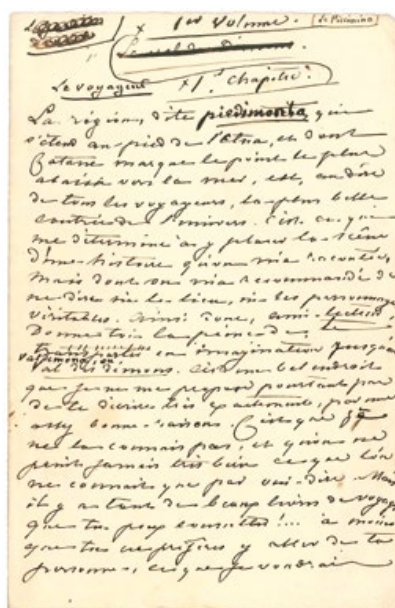 1er Volume.
Le Piccinino
Le val des Démons
Le voyageur
1er Chapitre.
La région, dite piedimonta, qui
s'étend au pied de l'Etna, et dont
Catane marque le point le plus
abaissé vers la mer, est, au dire
de tous les voyageurs, la plus belle
contrée de l'univers. C'est ce qui
me détermine à y placer la scène
d'une histoire qu'on m'a racontée,
mais dont on m'a recommandé de
ne dire ni le lieu, ni les personnages
véritables. Ainsi donc, ami lecteur,
donne toi la peine de te
transporter en imagination jusqu'au
valdemona, ou
val des démons. C'est un bel endroit
que je ne me propose pourtant pas
de te décrire très exactement, par une
assez bonne raison. C'est que je
ne le connais pas, et qu'on ne
peint jamais très bien ce que l'on
ne connait que par ouï-dire. Mais
il y a tant de beaux livres de voyage
que tu peux consulter!... à moins
que tu ne préfères y aller de ta
personne, ce que je voudrais